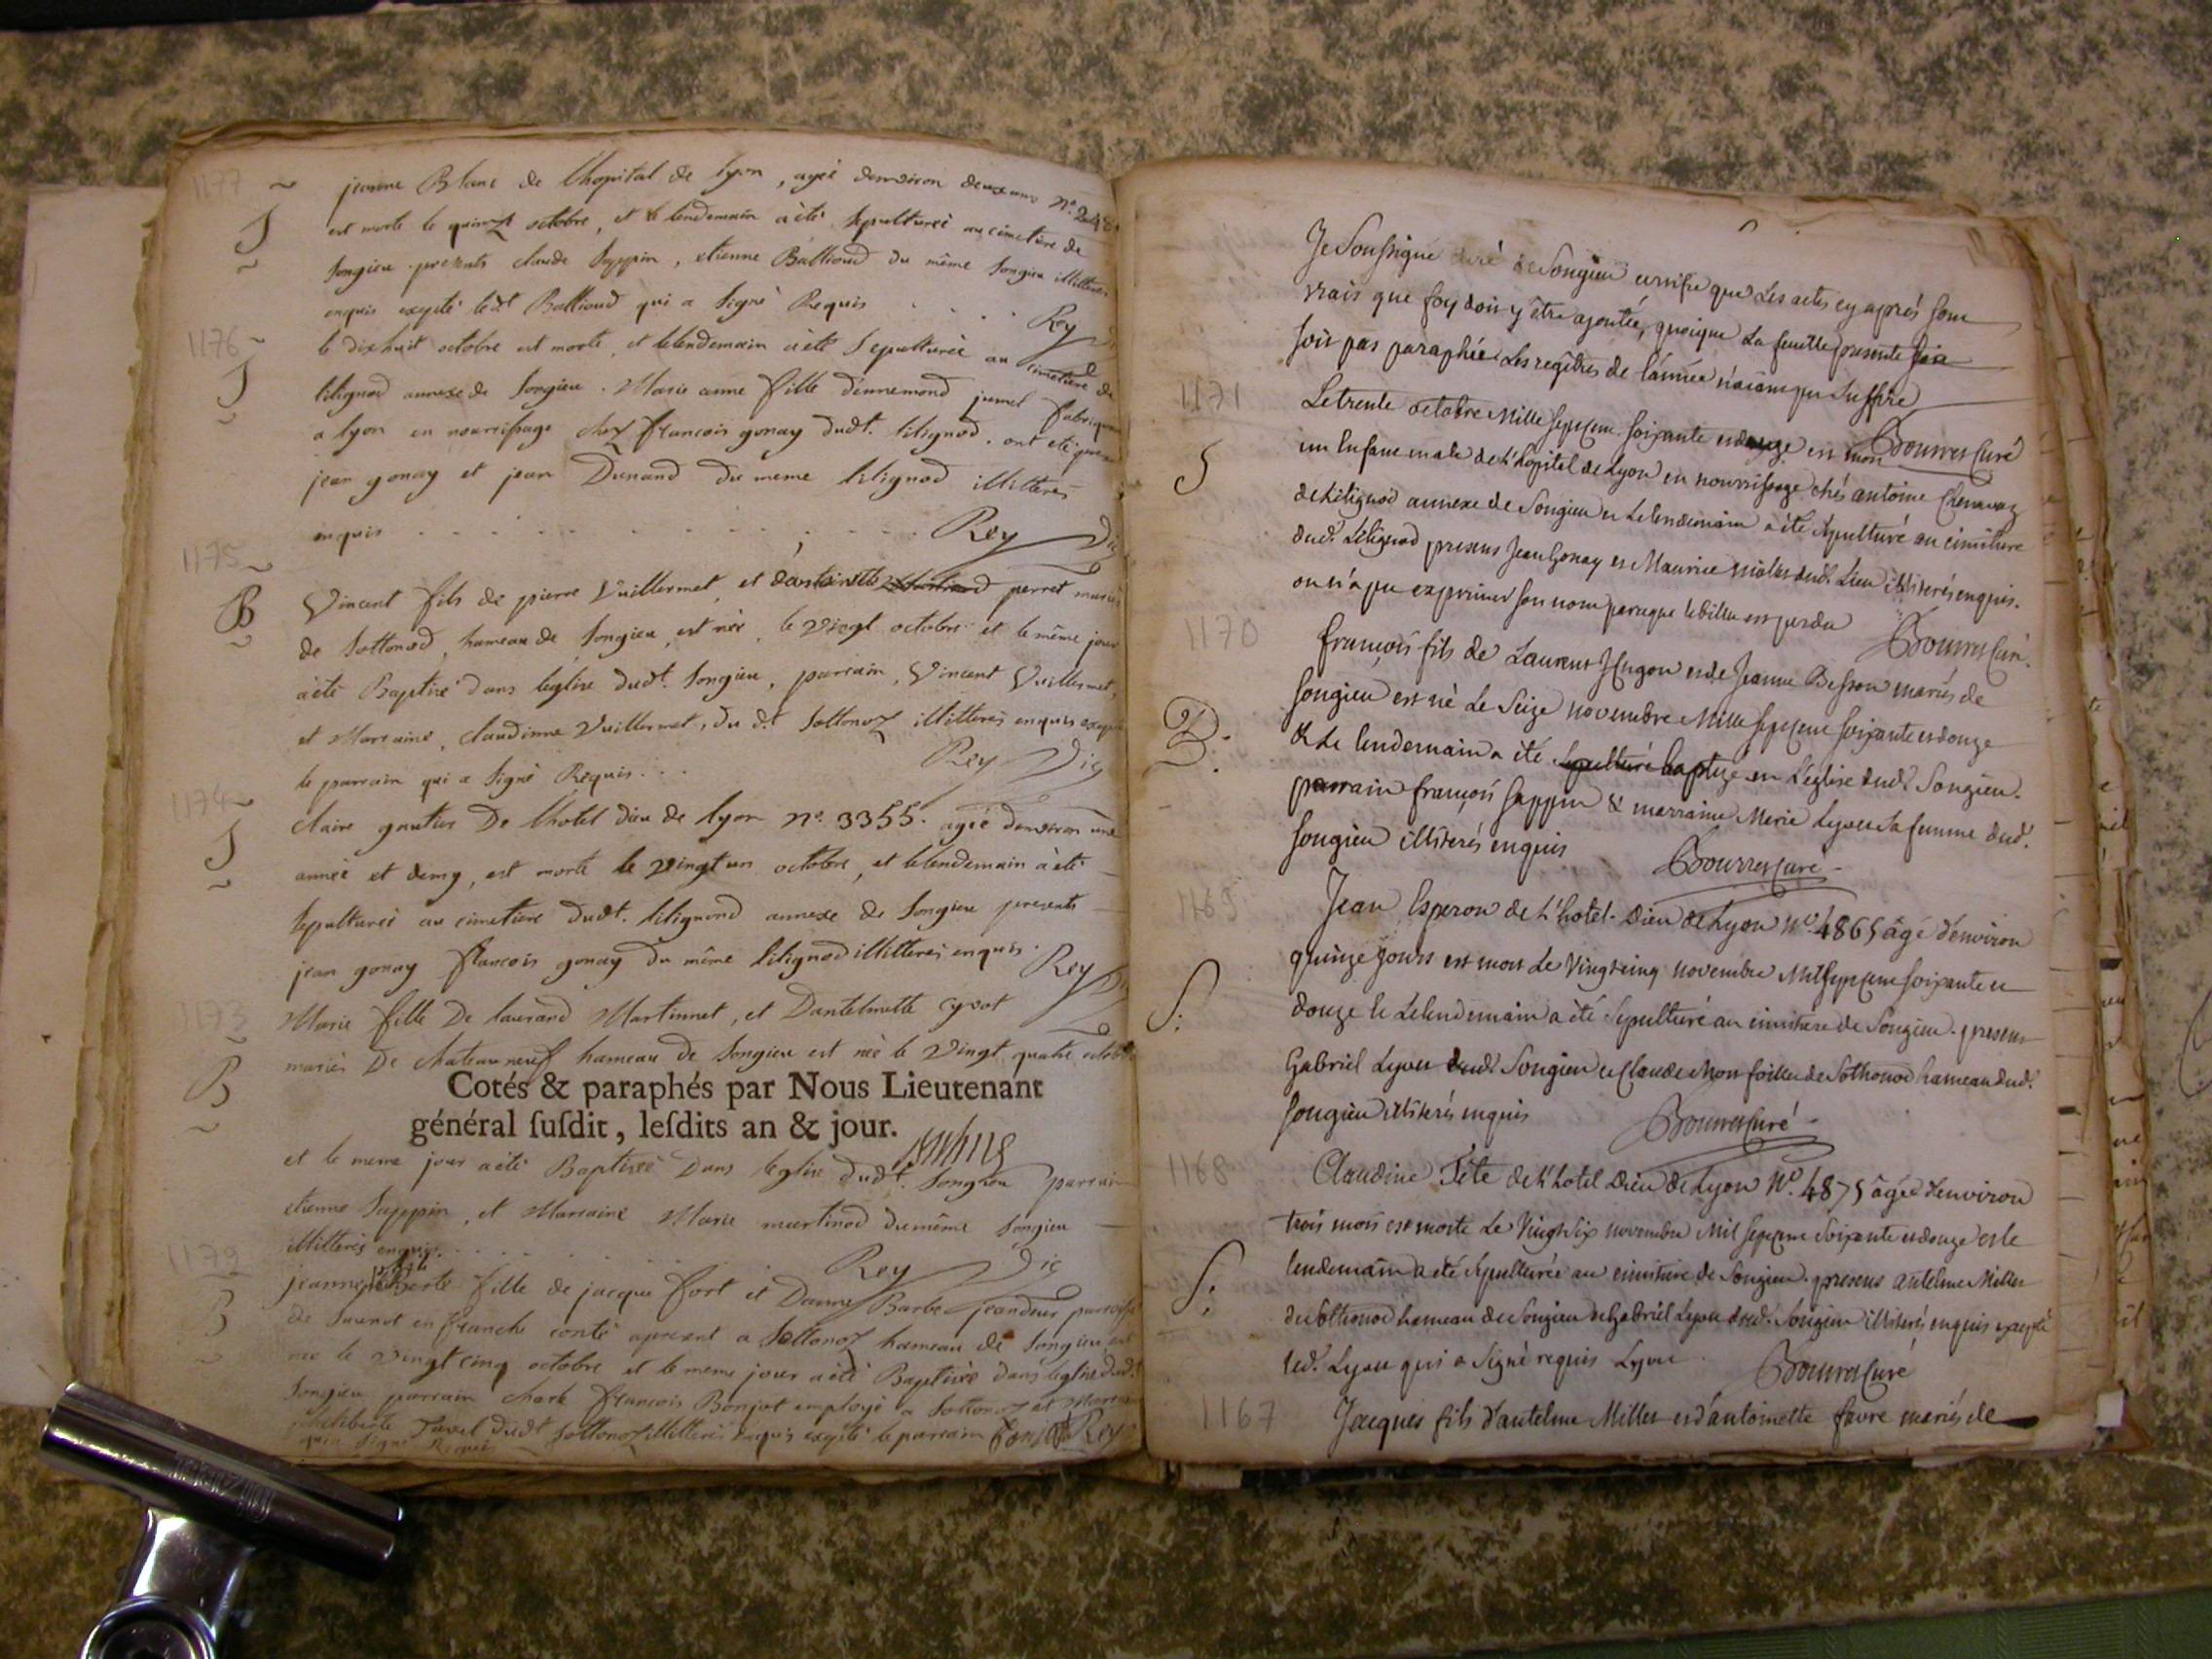 1177
jeanne Blanc de lhopital de lyon, ageé denviron deux ans n°.
S
est morte le quinze octobre, et le lendemain a été sepultureé au cimetiere de
songieu. presents claude Sappin, etienne Balliand du même songieu illitteres
enquis excepté led.t Balliand qui a signé Requis . . . . Rey
1176
le dixhuit octobre est morte, et le lendemain a été sepultureé au cimetiere de
S
lilignod annexe de songieu. Marie anne fille dennemond jumel fabriquant
a lyon en nourrissage chez francois gonay dudt. lilignod. ont été
jean gonay et jean Dunand du meme lilignod illitteres
enquis . . . . . . . . . . Rey Vic
1175
B
Vincent fils de pierre Vuillermet, et dantoinette perret mariés
de Sottonod, hameau de songieu, est née, le vingt octobre et le même jour
a été Baptisé dans leglise dudt. songieu, parrain, Vincent Vuillermet,
et Marraine, claudinne Vuillermet, du d.t Sottonoz illitteres enquis excepté
le parrain qui a signé Requis . . . Rey Vic
1174
S
claire gautier De lhotel dieu de lyon n°. 3355. ageé denviron une
anneé et demy, est morte le vingt un octobre, et le lendemain a été
sepultureé au cimetiere dudt. lilignod annexe de songieu presents
jean gonay francois gonay du même lilignod illitteres enquis. Rey
1173
B
Marie fille De laurand Martinnet, et Dantelmette cyvot
mariés De chateauneuf hameau de songieu est née le vingt quatre octobre
Cotés & paraphés par Nous Lieutenant
général ſuſdit, leſdits an & jour.
et le meme jour a été Baptiseé Dans leglise dudt. songieu parrain
etienne Sappin, et Marraine Marie martinod du même songieu
illitteres enquis. . . . . . Rey Vic
1179
B
jeanne fille de jacque fort et Danne Barbe jeandeur paroisse
de en franche conté apresent a Sottonoz hameau de songieu est
nee le vingt cinq octobre et le meme jour a été Baptiseé dans leglise dudt.
songieu parrain charle francois Bonjot employé a Sottonoz et Marraine
dudt Sottonoz illitteres enquis excepté le parrain Rey
qui a signé Requis
Je Soussigné curé de Songieu certifie que Les actes cy après sont
vrais que foy doit y être ajoutée, quoique La feuille presente
soit pas paraphée Les regîtres de l'année n'aiant pu suffire
Bourret Curé
1171
Le trente octobre Mille sept cent soixante et douze est mort
S
un enfant male de L'hopital de Lyon en nourrissage chés antoine Chenavaz
de Lilignod annexe de Songieu et Le lendemain a été sépulturé au cimitiere
dud.t Lilignod presens Jean Gonay et Maurice dud.t Lieu illiterés enquis.
on n'a pu exprimer son nom parceque le billet est perdu Bourret Curé.
1170
françois fils de Laurent Hugon et de Jeanne Besson mariés de
B.
songieu est né Le Seize novembre Mille sept cent soixante et douze
& Le lendemain a été sepulturé baptizé en L'église dud.t Songieu.
parrain françois Sappin & marraine Marie Lyon sa femme dud.t
songieu illiterés enquis Bourret Curé
1169
Jean Esperon de L'hotel-Dieu de Lyon N.° 4865 âgé d'environ
quinze jours est mort Le vingt cinq novembre Mil sept cent soixante et
S.
douze & Le lendemain a été sépulturé au cimitiere de Songieu. presens
Gabriel Lyon dud.t Songieu et Claude Mon foillet de Sothonod hameau dud.t
songieu illiterés enquis Bourret Curé
1168
Claudine Tête de L'hotel Dieu de Lyon N.° 4875 âgée d'environ
trois mois est morte Le Vingt Six novembre Mil sept cent soixante et douze et le
S.
lendemain a été sépulturée au cimitiere de Songieu. presens antelme Millet
de Sothonod hameau de Songieu et Gabriel Lyon dud.t Songieu illiterés enquis excepté
led.t Lyon qui a signé requis Lyon Bourret Curé
1167
Jacques fils d'antelme Millet et d'antoinette favre mariés de